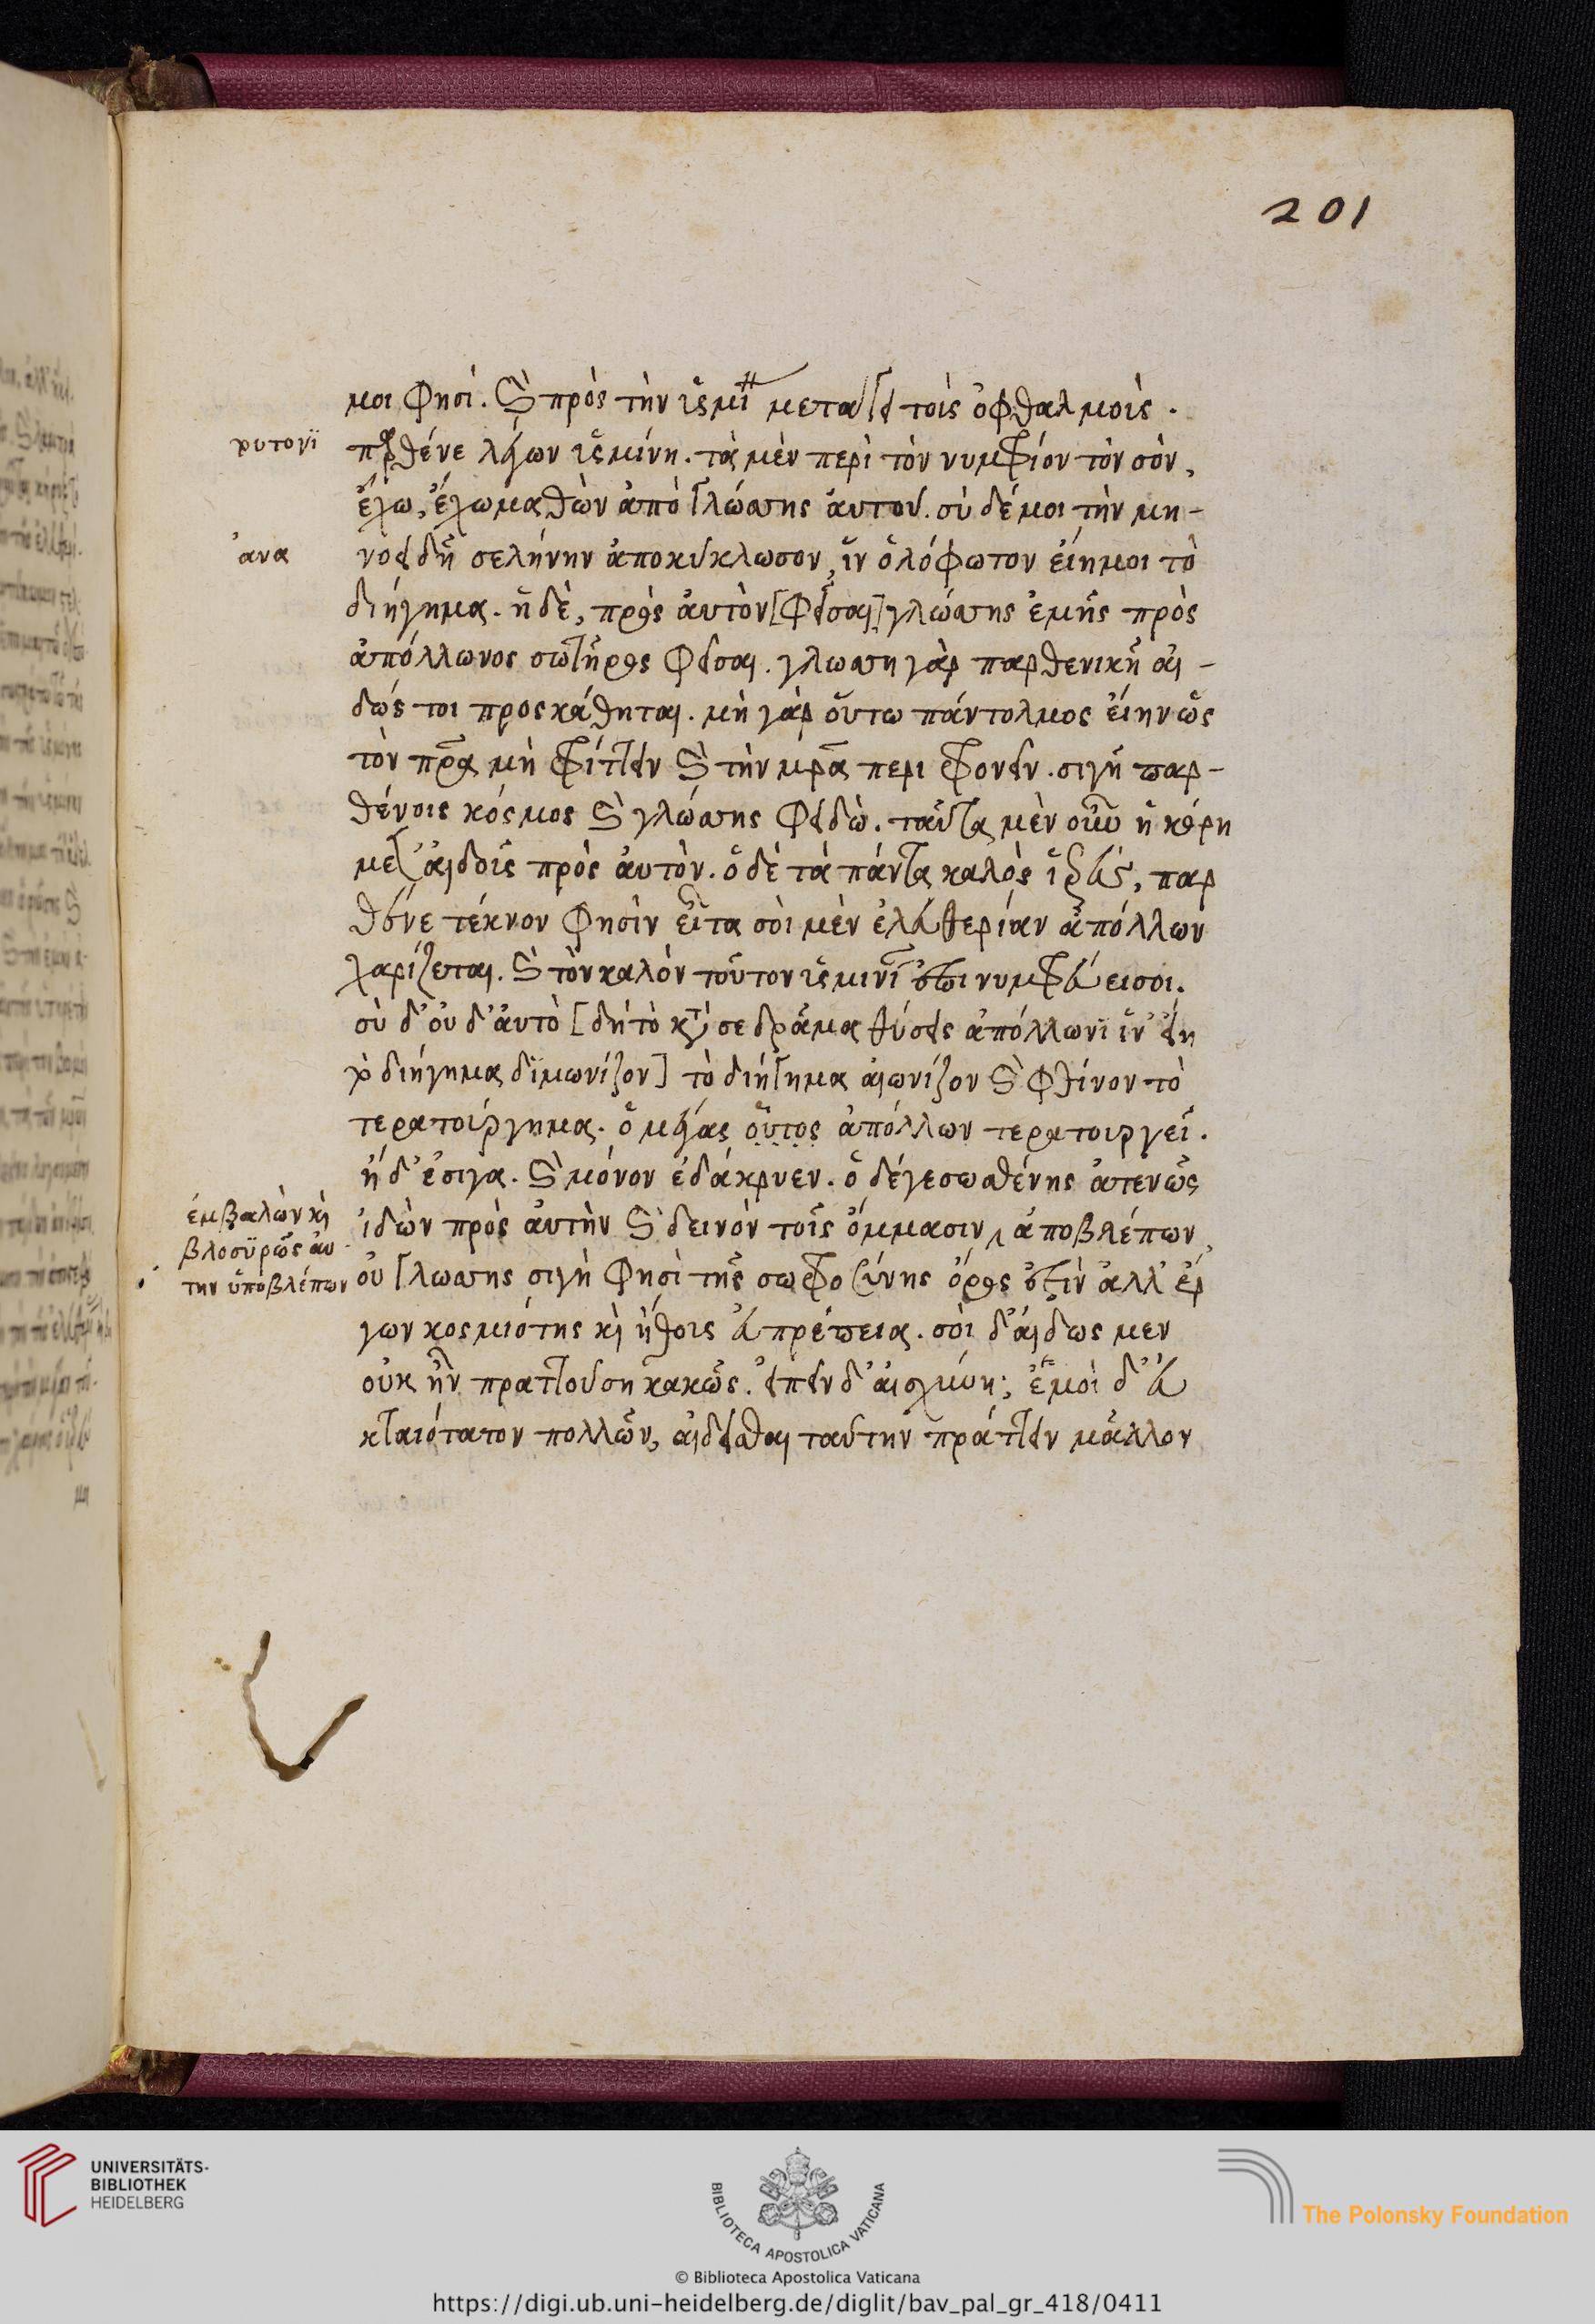 201
μοι φησί. καὶ πρὸς τὴν ἰσμί μετάγει τοῖς ὀφθαλμοῖς.
ρυτονϊ
παρθένε λέγων ἰσμίνη. τὰ μὲν περὶ τὸν νυμφίον τὸν σὸν,
ἔχω, ἔχω μαθὼν ἀπὸ γλώσσης ἀυτοῦ. σὺ δέ μοι τὴν μη-
ἀνα
νοειδῆ σελήνην ἀποκύκλωσον, ἵν ὁλόφωτον εἴη μοι τὸ
διήγημα. ἡ δὲ, πρὸς ἀυτὸν [φεῖσαι] γλώσσης ἐμῆς πρὸς
ἀπόλλωνος σωτῆρος φεῖσαι. γλωσση γὰρ παρθενικῆ αἰ-
δώς τοι προσκάθηται. μὴ γὰρ οὕτω πάντολμος εἴην ὡς
τὸν πρα μὴ φρίττειν καὶ τὴν μρα περιφρονεῖν. σιγὴ παρ-
θένοις κόσμος καὶ γλώσσης φειδὼ. ταῦτα μὲν οὖν ἡ κόρη
μετ' αἰδοῖς πρὸς ἀυτὸν. ὁ δὲ τὰ πάντα καλὸς ἱερεύς, παρ
θένε τέκνον φησὶν εἶτα σοὶ μὲν ἐλευθερίαν ἀπόλλων
χαρίζεται. καὶ τὸν καλὸν τοῦτον ἰσμινί νυμφεύει σοι.
σὺ δ' οὐδ' ἀυτὸ [δὴ τὸ κτ σε δρᾶμα θύσεις ἀπόλλωνϊ ἵν' εἴη
διήγημα διμωνίζον] τὸ διήγημα αἰωνίζον καὶ φθίνον τὸ
τερατούργημα. ὁ μέγας οὗτος ἀπόλλων τερατουργεῖ.
ἡ δ' ἐσίγα. καὶ μόνον ἐδάκρυεν. ὁ δέ γε σωσθένης ἀτενῶς
ἐμβαλὼν κὶ
βλοσϋρῶς ἀυ
την ὑποβλέπων
ἰδὼν πρὸς ἀυτὴν καὶ δεινὸν τοῖς ὄμμασιν ἀποβλέπων,
οὐ γλωσσης σιγὴ φησὶ τῆς σωφροσύνης ὅρος ἐστὶν ἀλλ' ἔρ
γων κοσμιότης κὶ ἤθοις εὐπρέπεια. σοὶ δ' αἰδως μεν
οὐκ ἦν πραττούση κακῶς. εἰπεῖν δ' αἰσχύνη; ἐμοὶ δ' εὐ
κταιότατον πολλῶν, αἰδεῖσθαι ταύτην πράττειν μᾶλλον
UNIVERSITÄTS-
BIBLIOTHEK
HEIDELBERG
BIBLIOTECA APOSTOLICA VATICANA
The Polonsky Foundation
© Biblioteca Apostolica Vaticana
https://digi.ub.uni-heidelberg.de/diglit/bav_pal_gr_418/0411